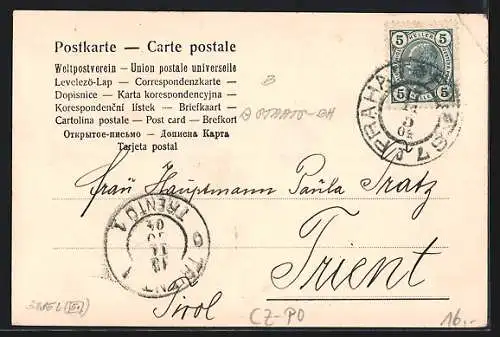 Postkarte — Carte postale
Weltpostverein — Union postale universelle
Levelező-Lap — Correspondenzkarte —
Dopisnice — Karta korespondencyjna —
Korespondenční lístek — Briefkaart —
Cartolina postale — Post card — Brefkort
Открытое-письмо — Дописна Карта
Tarjeta postal
5 HELLER 5
5 5
PRAHA
7
B
Frau Hauptmann Paula Tratz
Trient
Tirol
TRIENT 1
TRENTO 1
04
CZ-PO
16.-